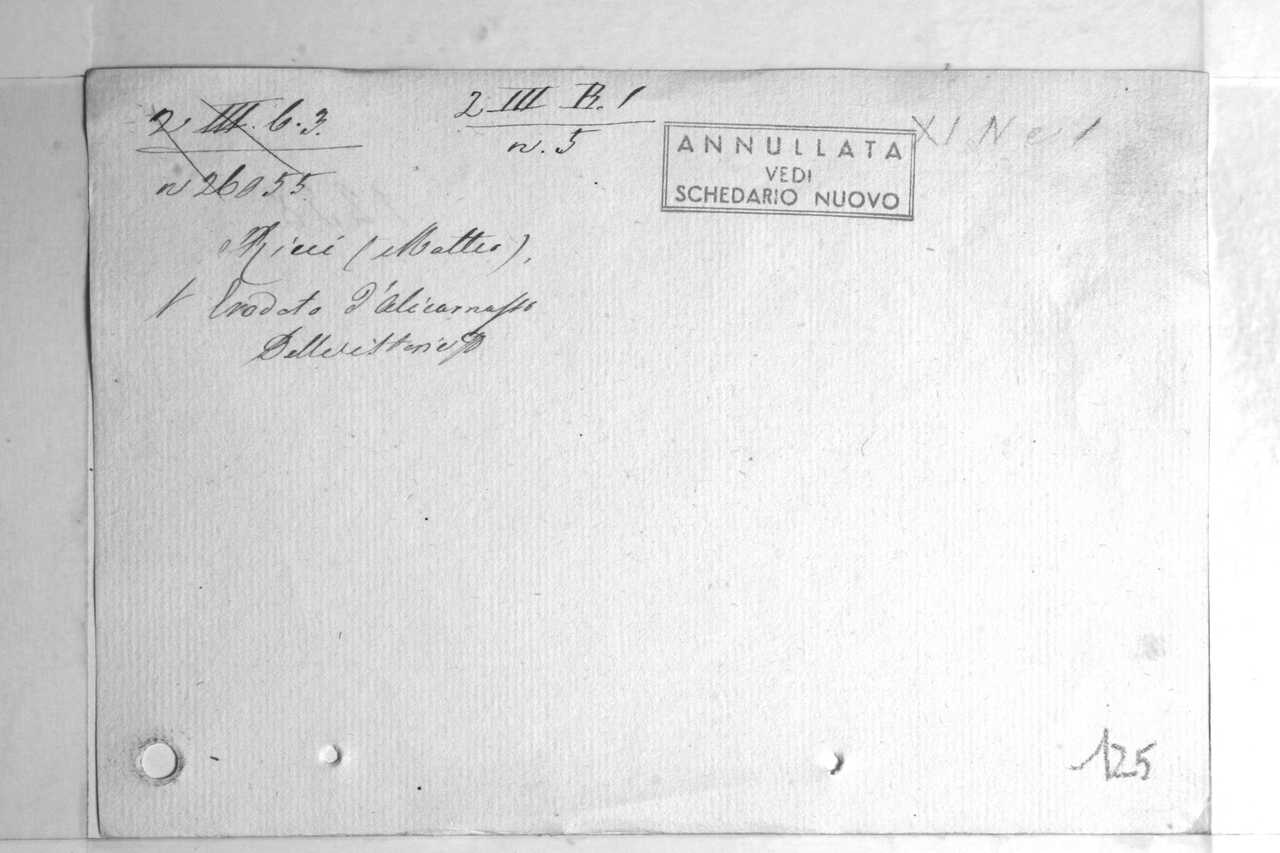 2 III. b. 3.
n 26055
2 III R. 1
n. 5
ANNULLATA
VEDI
SCHEDARIO NUOVO
XI N e 1
Ricci (Matteo),
Erodoto d'Alicarnasso
Delle istorie
125